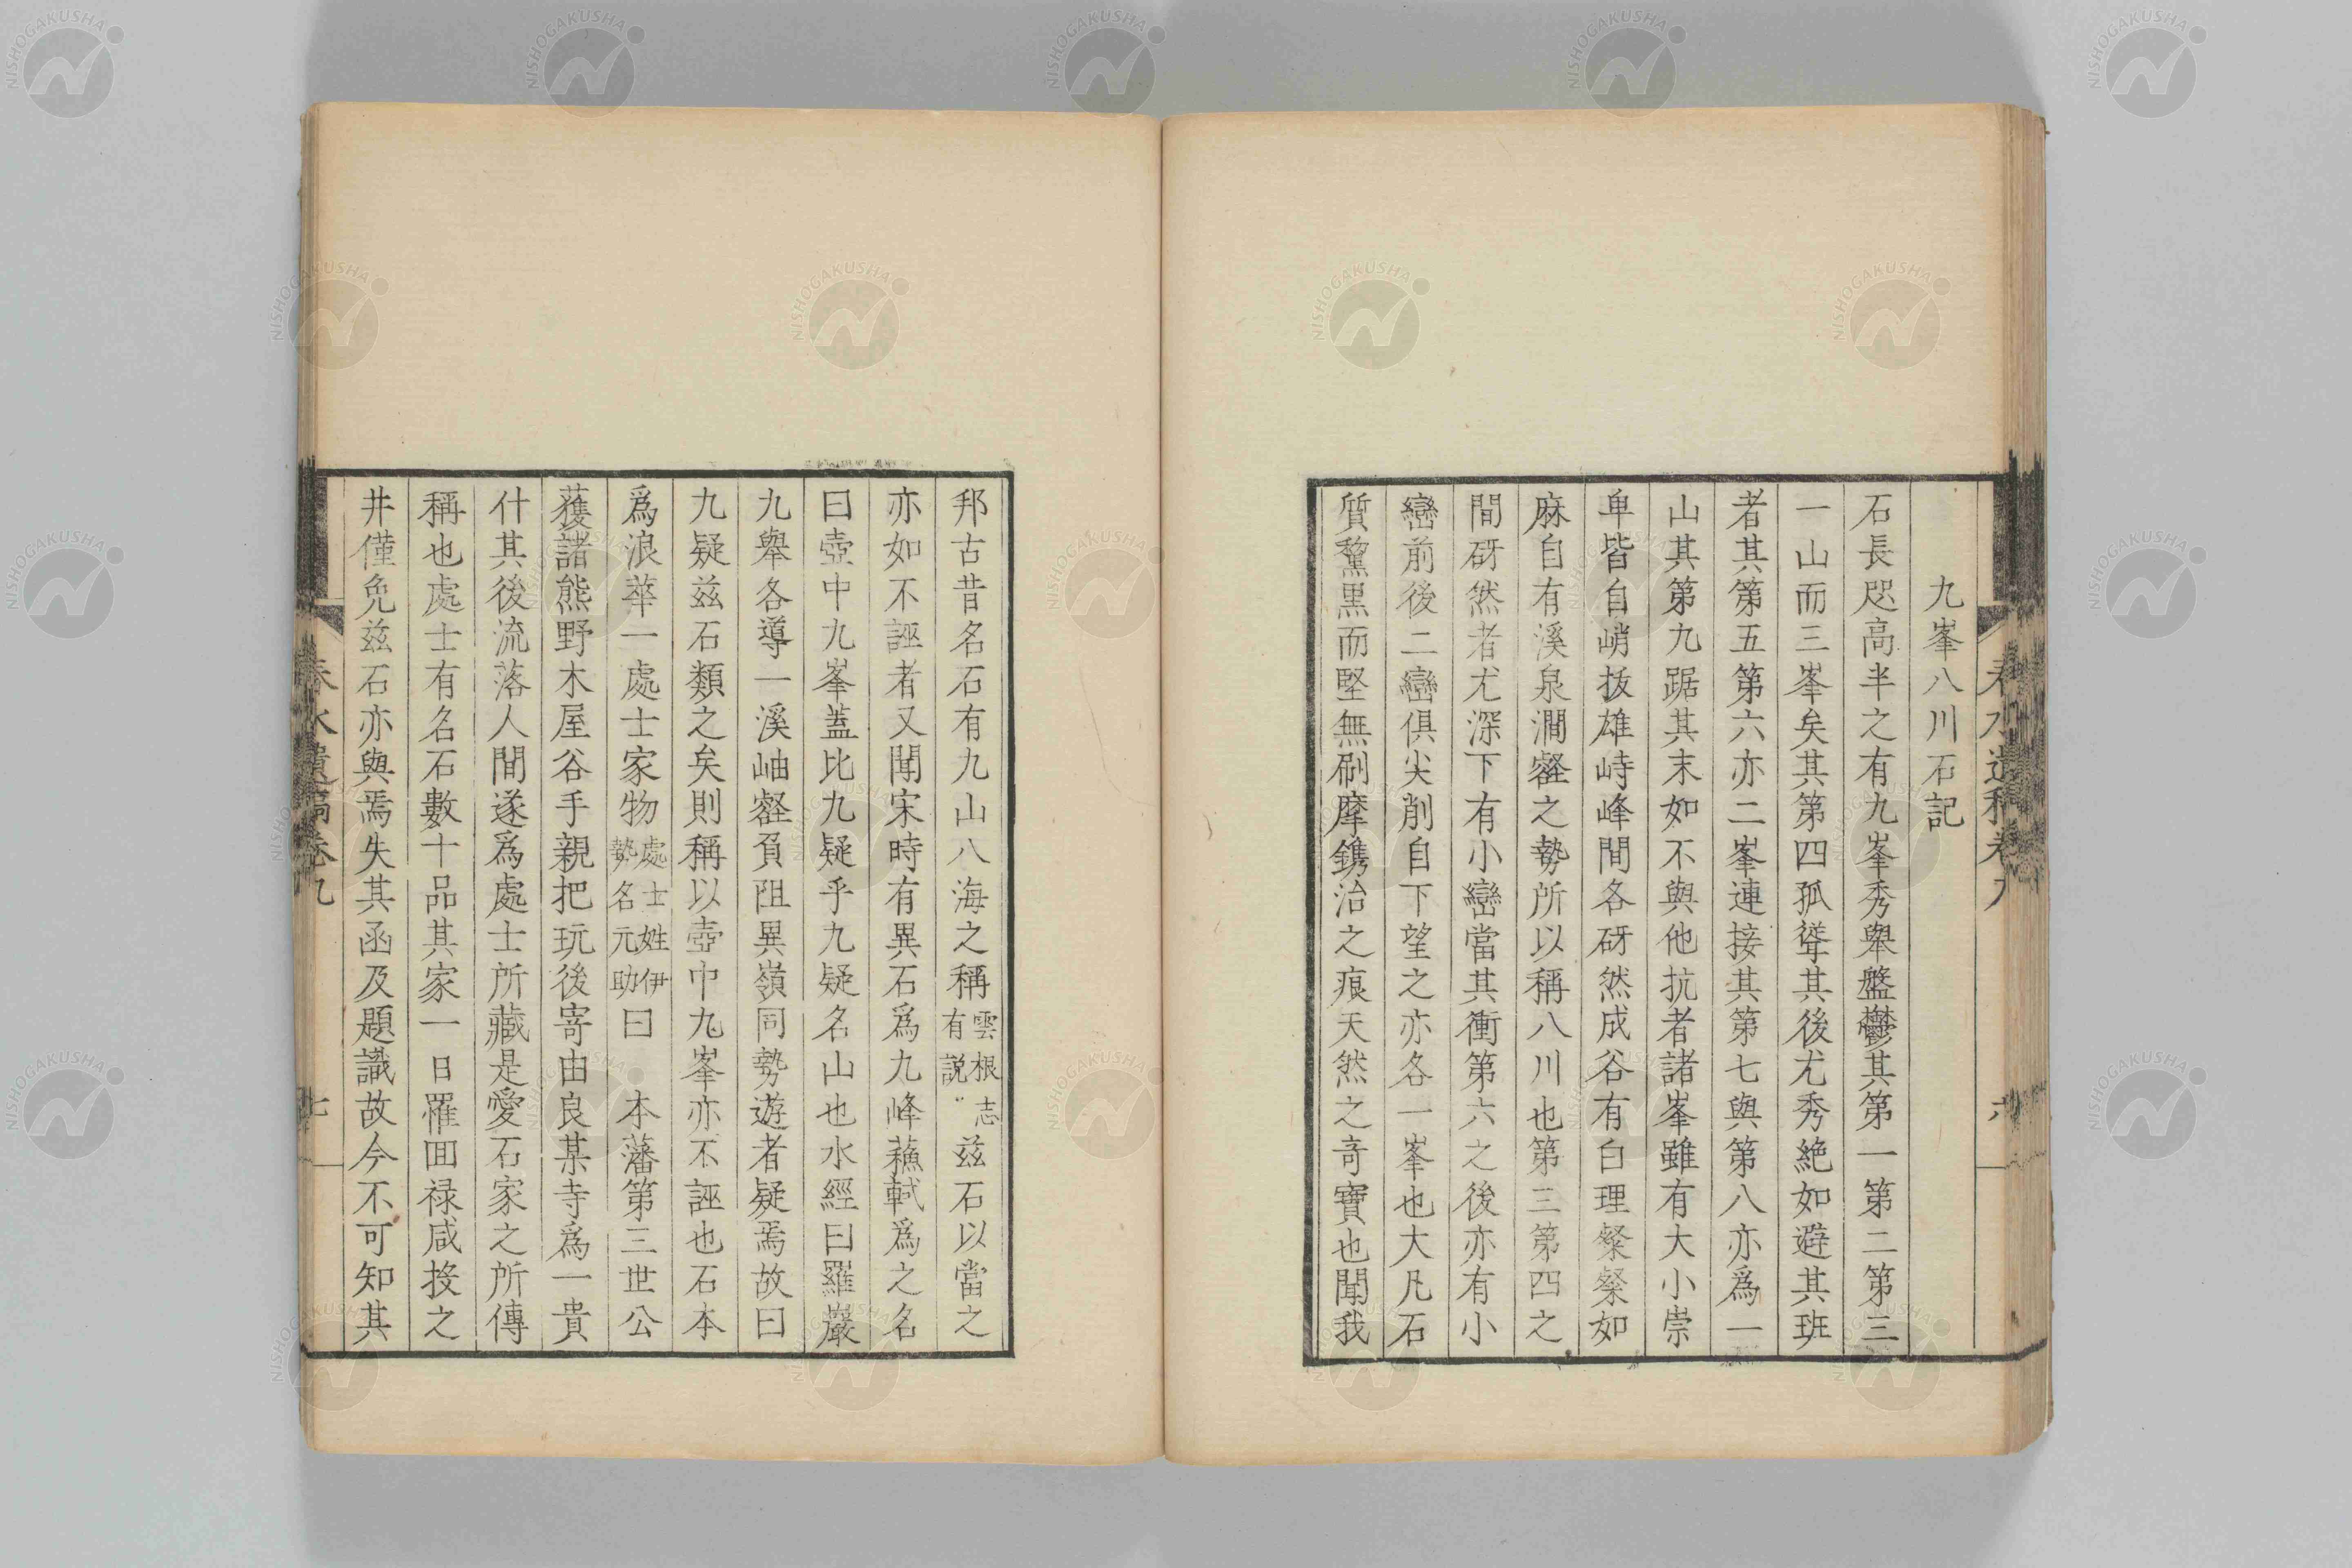 九峯八川石記
石長咫高半之有九峯秀舉盤鬱其第一第二第三
一山而三峯矣其第四孤聳其後尤秀絶如避其班
者其第五第六亦二峯連接其第七與第八亦爲一
山其第九踞其末如不與他抗者諸峯雖有大小崇
卑皆自峭拔雄峙峰間各砑然成谷有白理粲粲如
麻自有溪泉澗壑之勢所以稱八川也第三第四之
間砑然者尤深下有小巒當其衝第六之後亦有小
巒前後二巒俱尖削自下望之亦各一峯也大凡石
質黧黒而堅無刷摩鐫治之痕天然之奇寶也聞我
邦古昔名石有九山八海之稱雲根志有説茲石以當之
亦如不誣者又聞宋時有異石爲九峰蘓軾爲之名
曰壺中九峯蓋比九疑乎九疑名山也水經曰羅巖
九舉各導一溪岫壑負阻異嶺同勢遊者疑焉故曰
九疑茲石類之矣則稱以壺中九峯亦不誣也石本
爲浪華一處士家物處士姓伊勢名元助曰 本藩第三世公
獲諸熊野木屋谷手親把玩後寄由良某寺爲一貴
什其後流落人間遂爲處士所藏是愛石家之所傳
稱也處士有名石數十品其家一日罹囬禄咸投之
井僅免茲石亦與焉失其函及題識故今不可知其
春水遺稿卷九
七
六
NISHOGAKUSHA